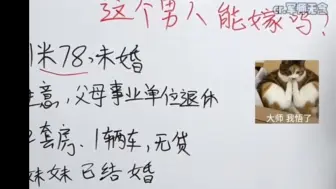 这个男人能嫁吗?
1米78,未婚
生意,父母事业单位退休
套房、1辆车,无贷
妹妹已结婚
大师 我悟了